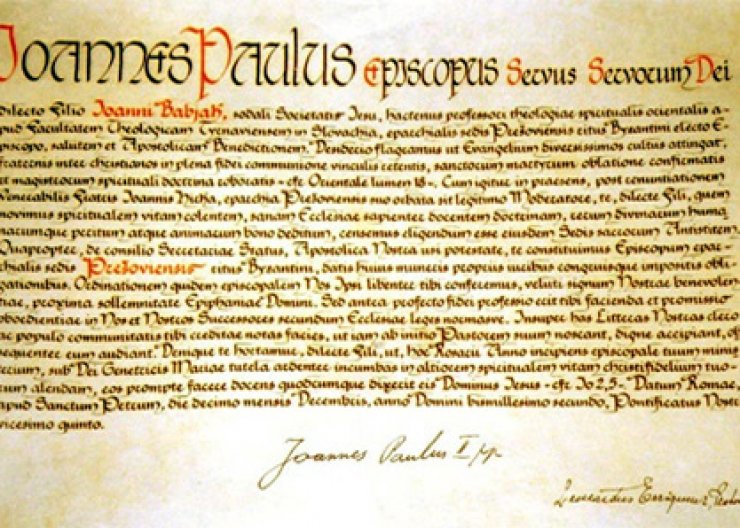 JOANNES PAULUS EPISCOPUS SERVUS SERVORUM DEI
dilecto Filio Ioanni Babjak, sodali Societatis Iesu, hactenus professori theologiae spiritualis orientalis a-
pud Facultatem Theologicam Tyrnaviensem in Slovachia, eparchialis sedis Prešoviensis ritus Byzantini electo E-
piscopo, salutem et Apostolicam Benedictionem. Desiderio flagramus ut Evangelium diversissimos cultus attingat,
fraternis inter christianos in plena fidei communione vinculis retentis, sanctorum martyrum oblatione confirmatis
et magistrorum spirituali doctrina roboratis - cfr Orientale lumen 18 -. Cum igitur in praesens, post renuntiationem
Venerabilis Fratris Ioannis Hirka, eparchia Prešoviensis suo orbata sit legitimo Moderatore, te, dilecte Fili, quem
novimus spiritualem vitam colentem, sanam Ecclesiae sapienter docentem doctrinam, rerum divinarum huma
narumque peritum atque animarum bono deditum, censemus eligendum esse eiusdem Sedis sacrorum Antistitem.
Quapropter, de consilio Secretariae Status, Apostolica Nostra usi potestate, te constituimus Episcopum epar-
chialis sedis Prešoviensis ritus Byzantini, datis huius muneris propriis iuribus congruisque impositis obli-
gationibus. Ordinationem quidem episcopalem Nos Ipsi libenter tibi conferemus, veluti signum Nostrae benevolen
tiae, proxima sollemnitate Epiphaniae Domini. Sed antea profecto fidei professio erit tibi facienda et promissio
oboedientiae in Nos et Nostros Successores secundum Ecclesiae leges normasve. Insuper has Litteras Nostras clero
ac populo communitatis tibi creditae notas facies, ut iam ab initio Pastorem suum noscant, digne accipiant, ob
sequenter eum audiant. Denique te hortamur, dilecte Fili, ut, hoc Rosarii Anno incipiens episcopale tuum minis
terium, sub Dei Genetricis Mariae tutela ardenter incumbas in altiorem spiritualem vitam christifidelium tuo-
rum alendam, eos prompte facere docens quodcumque dixerit eis Dominus Iesus - cfr Io 2,5 -. Datum Romae,
apud Sanctum Petrum, die decimo mensis Decembris, anno Domini bismillesimo secundo, Pontificatus Nostri
vicesimo quinto.
Joannes Paulus II